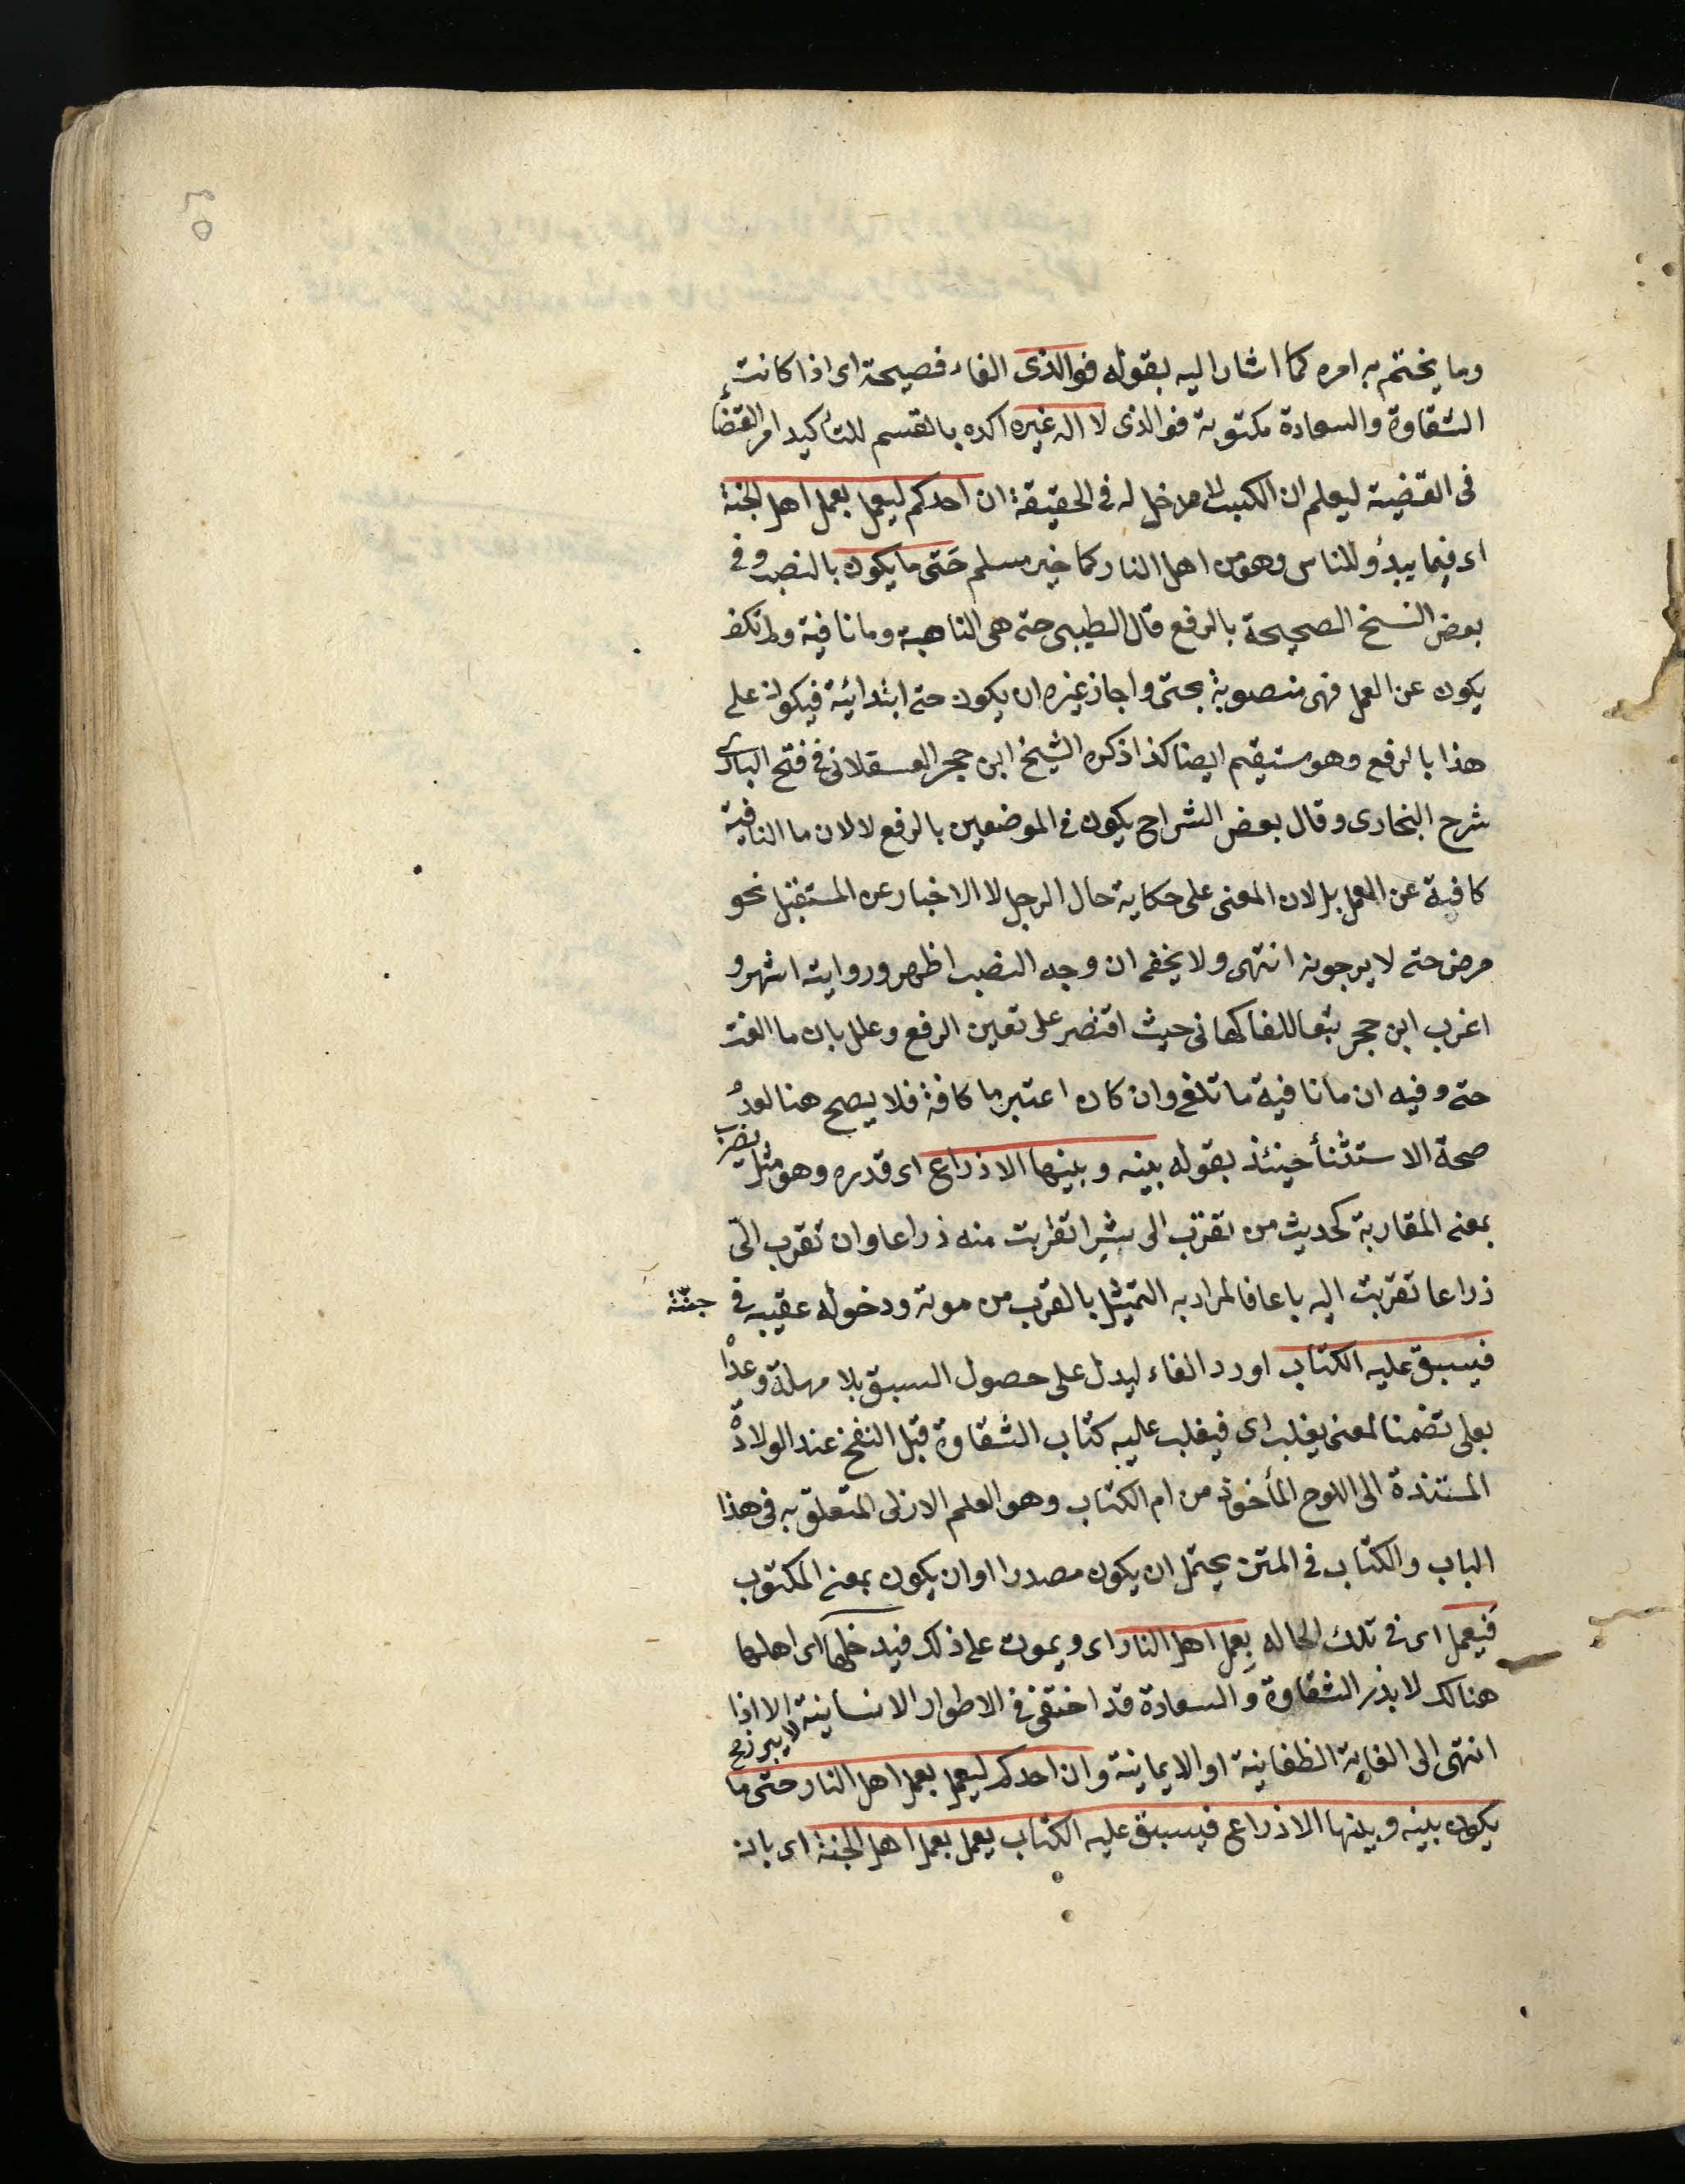 وما يختم به امره كما اشار اليه بقوله فوالذى الفاء فصيحة اى اذا كانت
الشقاوة والسعادة مكتوبة فوالذى لا اله غيره اكده بالقسم للتأكيد امر القضأ
فى القضية ليعلم ان الكسب لا مدخل له فى الحقيقة ان احدكم ليعمل بعمل اهل الجنة
اى فيما يبدؤ للناس وهو من اهل النار كما خبر مسلم حَتى ما يكون بالنصب وفى
بعض النسخ الصحيحة بالرفع قال الطيبى حتى هى الناصبة وما نافية ولم تكف
يكون عن العمل فهى منصوبة بحتى واجاز غيره ان يكون حتى ابتدائية فيكون على
هذا بالرفع وهو مستقيم ايضا كذا ذكره الشيخ ابن حجر العسقلانى فى فتح البارى
شرح البخارى وقال بعض الشراح يكون فى الموضعين بالرفع لا لان ما النافية
كافية عن العمل بل لان المعنى على حكاية حال الرجل لا الاخبار عن المستقبل نحو
مرض حتى لا يرجونه انتهى ولا يخفى ان وجه النصب اظهر وروايته اشهر و
اغرب ابن حجر تبعا للفاكهانى حيث اقتصر على تعين الرفع وعلل بان ما الفت
حتى وفيه ان ما نافية ما تلغى وان كان اعتبر ما كافة فلا يصح هنا لعدم
صحة الاستثنأ حينئذ بقوله بينه وبينها الا ذراع اى قدره وهو مثل يضرب
بمعنى المقاربة كحديث من تقرب الى شبرا تقربت منه ذراعا وان تقرب الىّ
ذراعا تقربت اليه باعا فالمراد به التمثيل بالقرب من موته ودخوله عقيبه فى جنّته
فيسبق عليه الكتاب اورد الفاء ليدل على حصول السبق بلا مهلة وعدّا
بعلى تضمنا لمعنى يغلب اى فيغلب عليه كتاب الشقاوة قبل النفخ عند الولادة
المستندة الى اللوح المأخوذ من ام الكتاب وهو العلم الازلى المتعلق به فى هذا
الباب والكتاب فى المتن يحتمل ان يكون مصدرا او ان يكون بمعنى المكتوب
فيعمل اى فى تلك الحاله بِعمل اهل النار اى ويموت على ذلك فيدخلها اى اهلها
هنالك لا بذر الشقاوة والسعادة قد اختفى فى الاطوار الانسانية لا يبرز مح الا اذا
انتهى الى الغاية الطغانية او الايمانية وان احدكم ليعمل بعمل اهل النار حتى ما
يكون بينه وبينها الا ذراع فيسبق عليه الكتاب يعمل بعمل اهل الجنة اى بانه